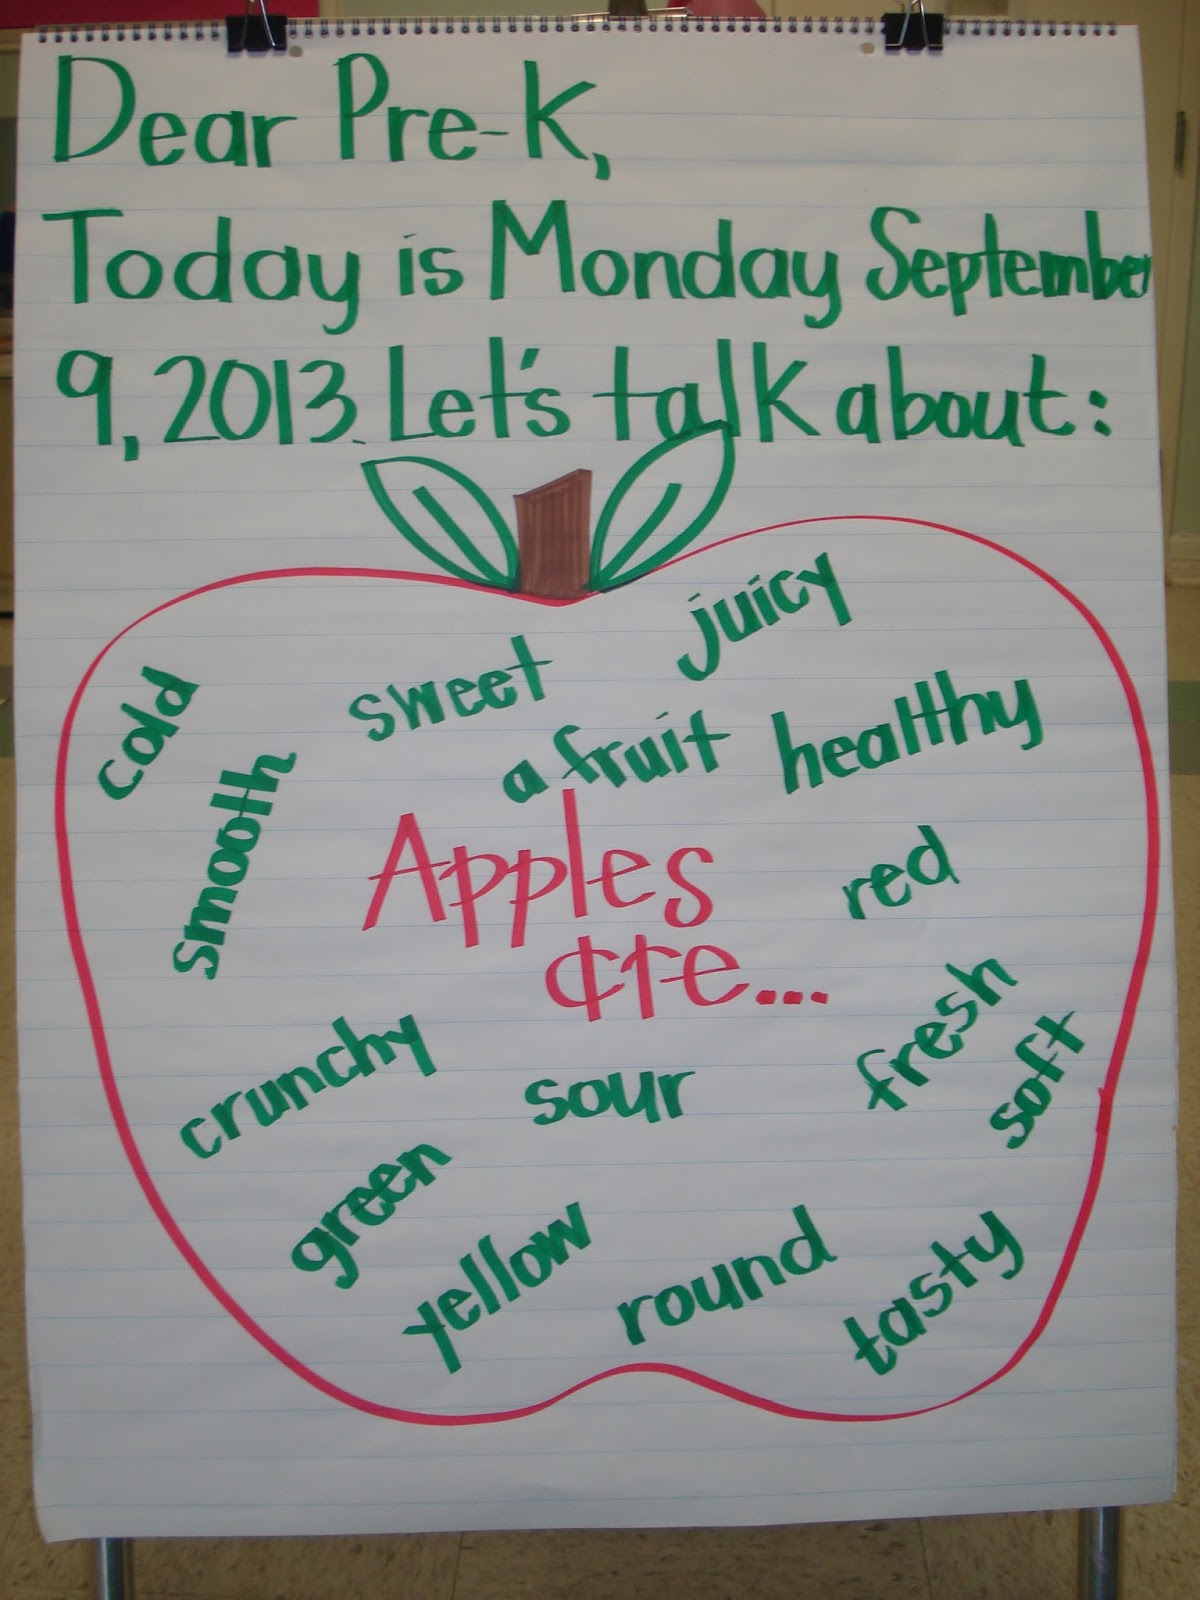 Dear Pre-K,
Today is Monday September
9, 2013. Let's talk about:
juicy
sweet
cold
a fruit
healthy
smooth
Apples
are...
red
fresh
soft
crunchy
sour
green
yellow
round
tasty